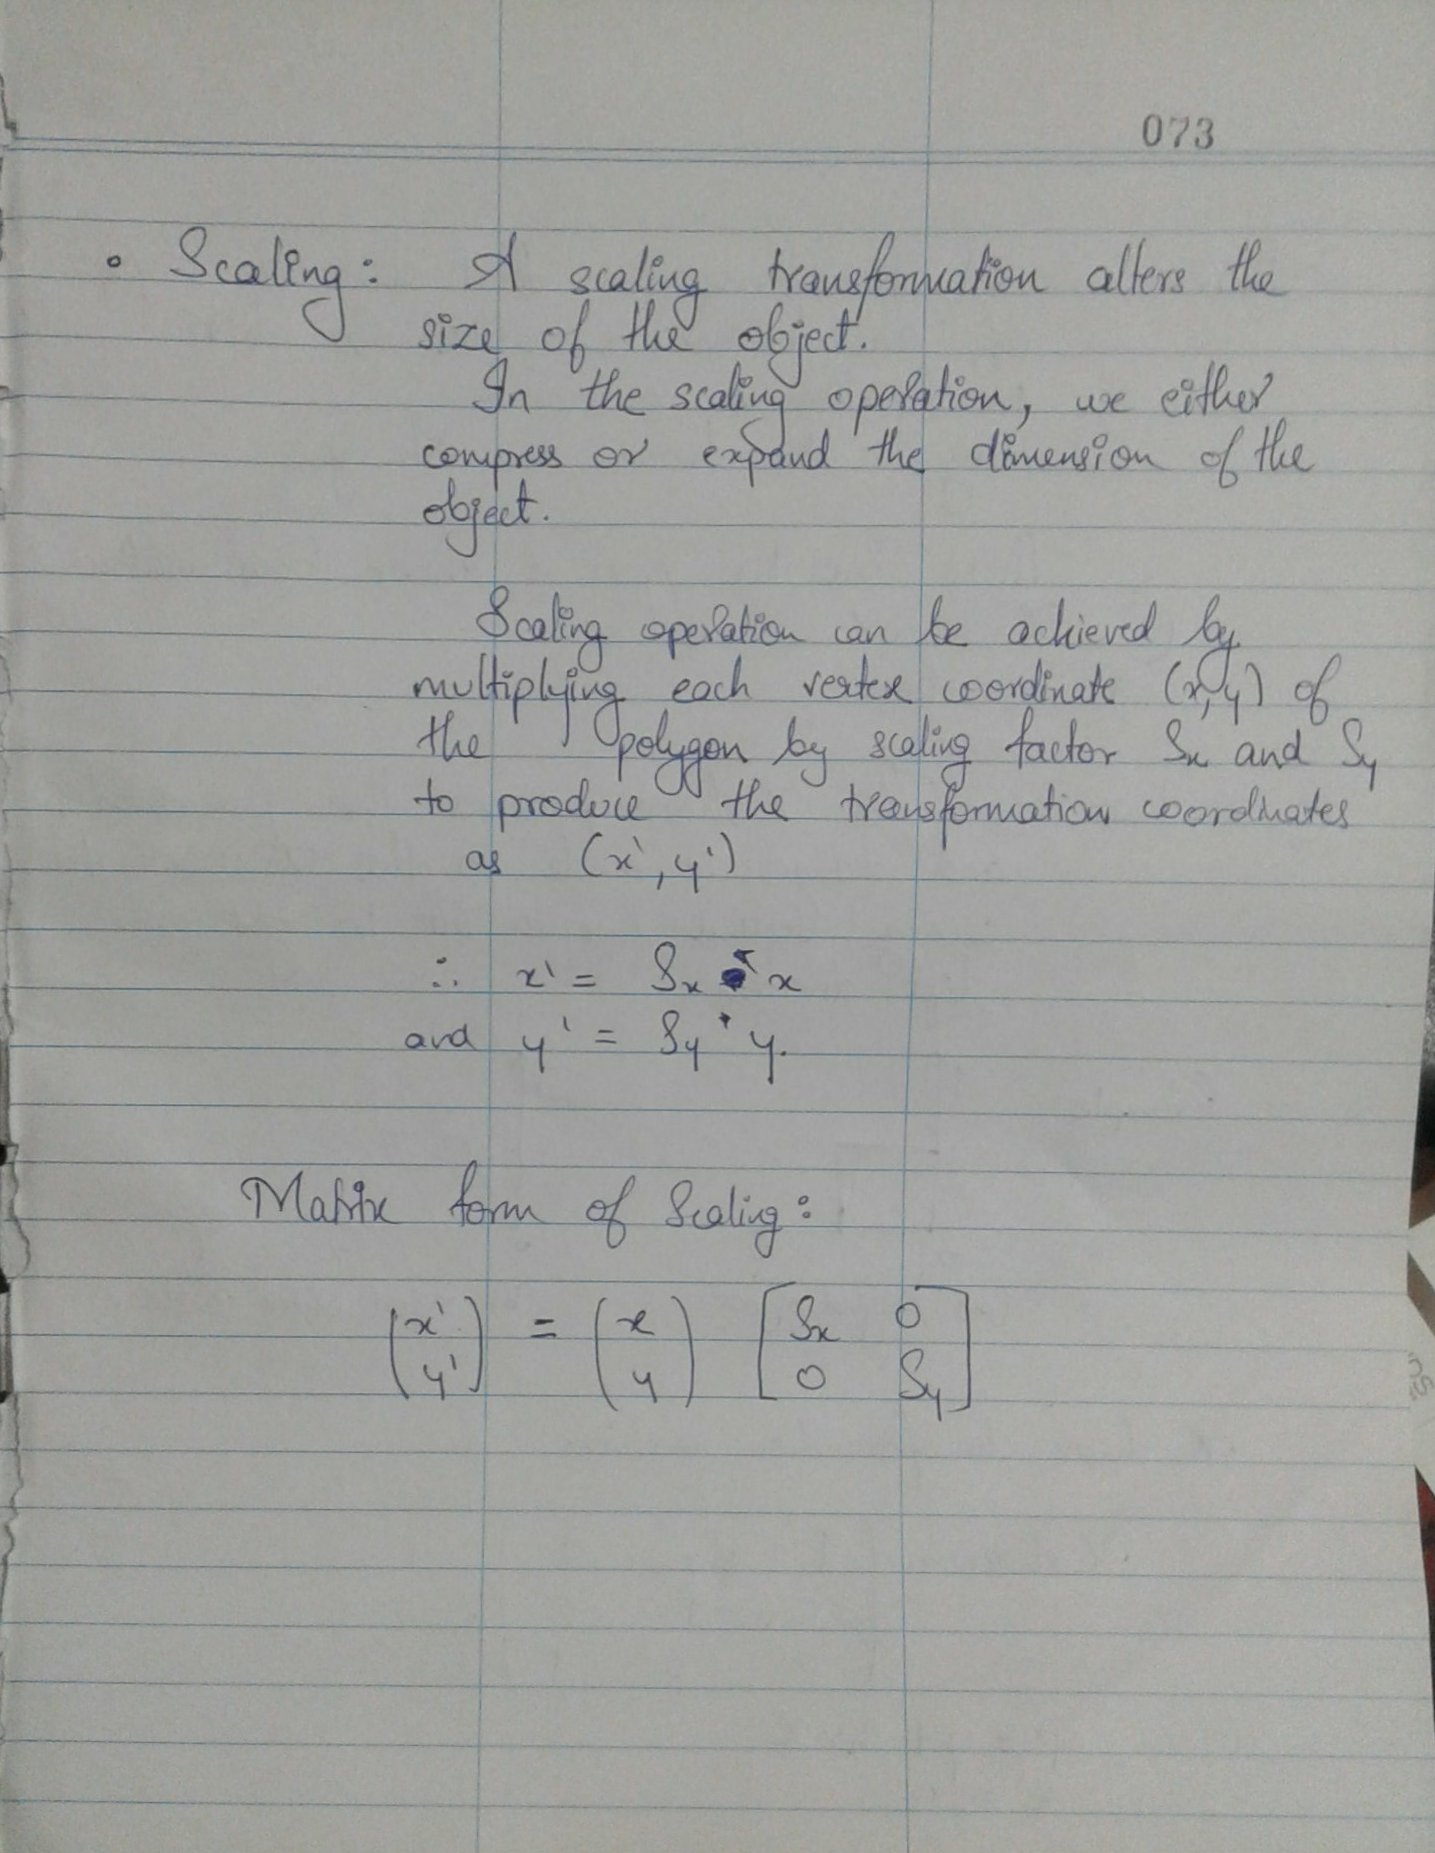 073
• Scaling: A scaling transformation alters the
size of the object.
In the scaling operation, we either
compress or expand the dimension of the
object.
Scaling operation can be achieved by
multiplying each vertex coordinate (x,y) of
the polygon by scaling factor Sx and Sy
to produce the transformation coordinates
as (x', y')
∴ x' = Sx * x
and y' = Sy * y.
Matrix form of Scaling:
(x') = (x) [Sx 0]
(y') (y) [0 Sy]